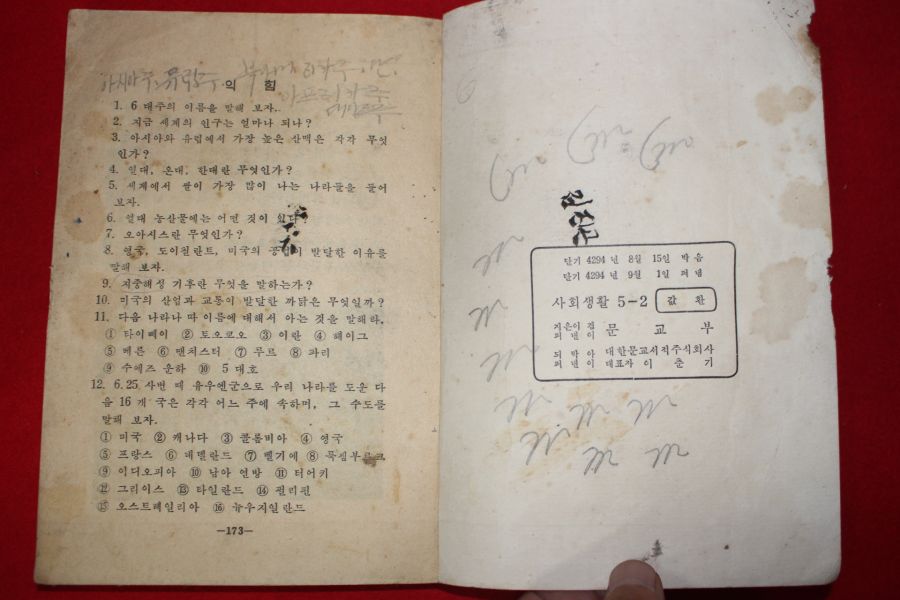 아시아주, 유럽주
익 힘
1. 6 대주의 이름을 말해 보자.
2. 지금 세계의 인구는 얼마나 되나?
3. 아시아와 유럽에서 가장 높은 산맥은 각각 무엇
인가?
4. 열대, 온대, 한대란 무엇인가?
5. 세계에서 쌀이 가장 많이 나는 나라들을 들어
보자.
6. 열대 농산물에는 어떤 것이 있나?
7. 오아시스란 무엇인가?
8. 영국, 도이칠란트, 미국의 공업이 발달한 이유를
말해 보자.
9. 지중해성 기후란 무엇을 말하는가?
10. 미국의 산업과 교통이 발달한 까닭은 무엇일까?
11. 다음 나라나 땅 이름에 대해서 아는 것을 말해라.
① 타이뻬이 ② 토오쿄오 ③ 이란 ④ 헤이그
⑤ 베른 ⑥ 맨치스터 ⑦ 루르 ⑧ 파리
⑨ 수에즈 운하 ⑩ 5 대호
12. 6.25 사변 때 유우엔군으로 우리 나라를 도운 다
음 16 개 국은 각각 어느 주에 속하며, 그 수도를
말해 보자.
① 미국 ② 캐나다 ③ 콜롬비아 ④ 영국
⑤ 프랑스 ⑥ 네델란드 ⑦ 벨기에 ⑧ 룩셈부르크
⑨ 이디오피아 ⑩ 남아 연방 ⑪ 터어키
⑫ 그리이스 ⑬ 타일란드 ⑭ 필리핀
⑮ 오스트레일리아 ⑯ 뉴우지일란드
—173—
단기 4294 년 8월 15일 박음
단기 4294 년 9월 1일 펴냄
사회생활 5-2 값 환
지은이 겸
펴낸이 문교부
되박아
펴낸이 대한문교서적주식회사
대표자 이춘기